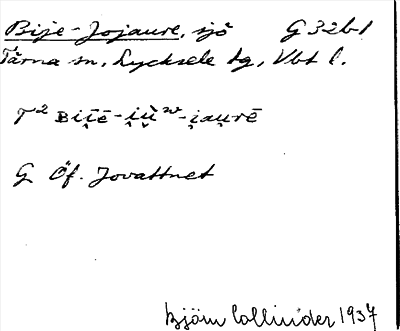 Bije-Jojaure, sjö G 32b1
Tärna sn, Lycksele tg, Vbt l.
T² Bi̯i̯ē-i̯ù̯ʷ-i̯au̯rē
G Öf. Jovattnet
Björn Collinder 1937